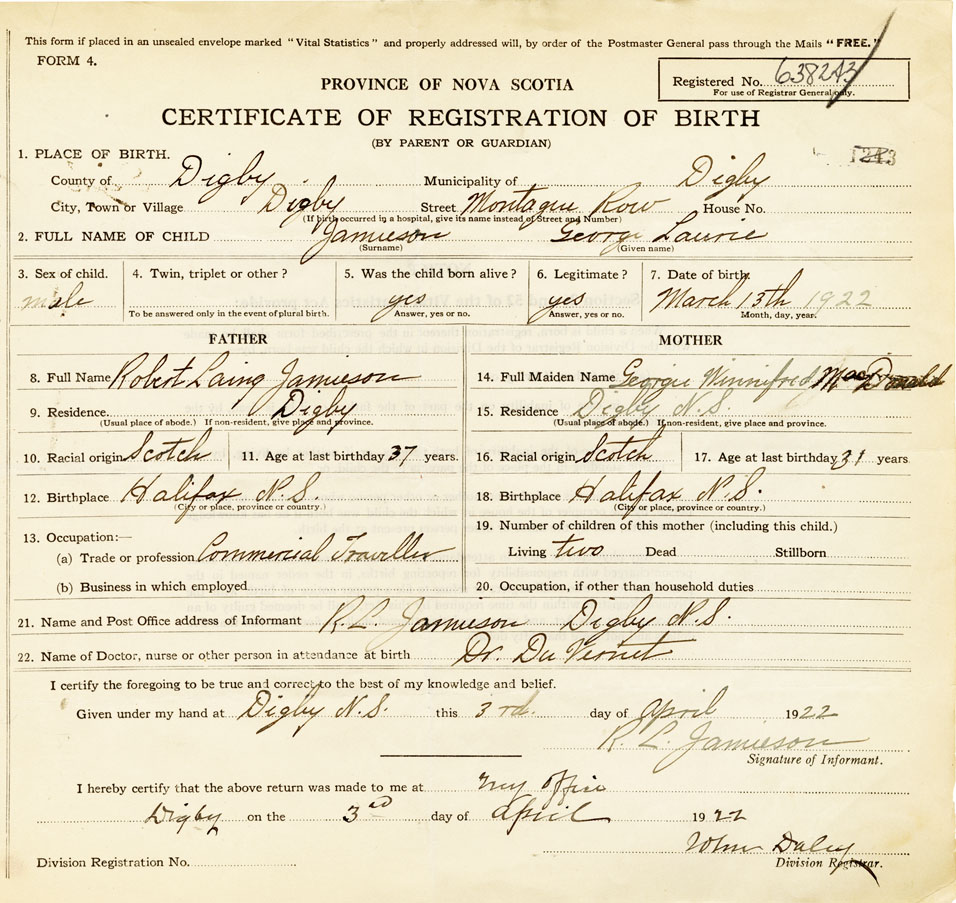 This form if placed in an unsealed envelope marked "Vital Statistics" and properly addressed will, by order of the Postmaster General pass through the Mails "FREE."
FORM 4.
Registered No. 638243
For use of Registrar General only.
PROVINCE OF NOVA SCOTIA
CERTIFICATE OF REGISTRATION OF BIRTH
(BY PARENT OR GUARDIAN)
1243
1. PLACE OF BIRTH.
County of Digby Municipality of Digby
City, Town or Village Digby Street Montague Row House No.
(If birth occurred in a hospital, give its name instead of Street and Number)
2. FULL NAME OF CHILD Jamieson George Laurie
(Surname) (Given name)
3. Sex of child. 4. Twin, triplet or other? 5. Was the child born alive? 6. Legitimate? 7. Date of birth.
male yes yes March 13th 1922
To be answered only in the event of plural birth. Answer, yes or no. Answer, yes or no. Month, day, year.
FATHER MOTHER
8. Full Name Robert Laing Jamieson 14. Full Maiden Name Georgie Winnifred MacDonald
9. Residence Digby 15. Residence Digby N.S.
(Usual place of abode.) If non-resident, give place and province. (Usual place of abode.) If non-resident, give place and province.
10. Racial origin Scotch 11. Age at last birthday 37 years. 16. Racial origin Scotch 17. Age at last birthday 31 years
12. Birthplace Halifax N.S. 18. Birthplace Halifax N.S.
(City or place, province or country.) (City or place, province or country.)
13. Occupation:— 19. Number of children of this mother (including this child.)
(a) Trade or profession Commercial Traveller Living two Dead Stillborn
(b) Business in which employed 20. Occupation, if other than household duties
21. Name and Post Office address of Informant R.L. Jamieson Digby N.S.
22. Name of Doctor, nurse or other person in attendance at birth Dr. DuVernet
I certify the foregoing to be true and correct to the best of my knowledge and belief.
Given under my hand at Digby N.S. this 3rd. day of April 1922
R. L. Jamieson
Signature of Informant.
I hereby certify that the above return was made to me at my office
Digby on the 3rd day of April 1922
John Daley
Division Registration No. Division Registrar.